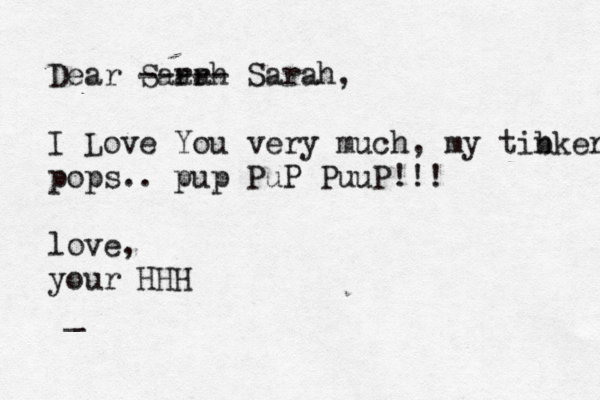 Dear Sarah Sarah,
I Love You very much, my tinker
pops.. pup PuP PuuP!!!
love,
your HHH